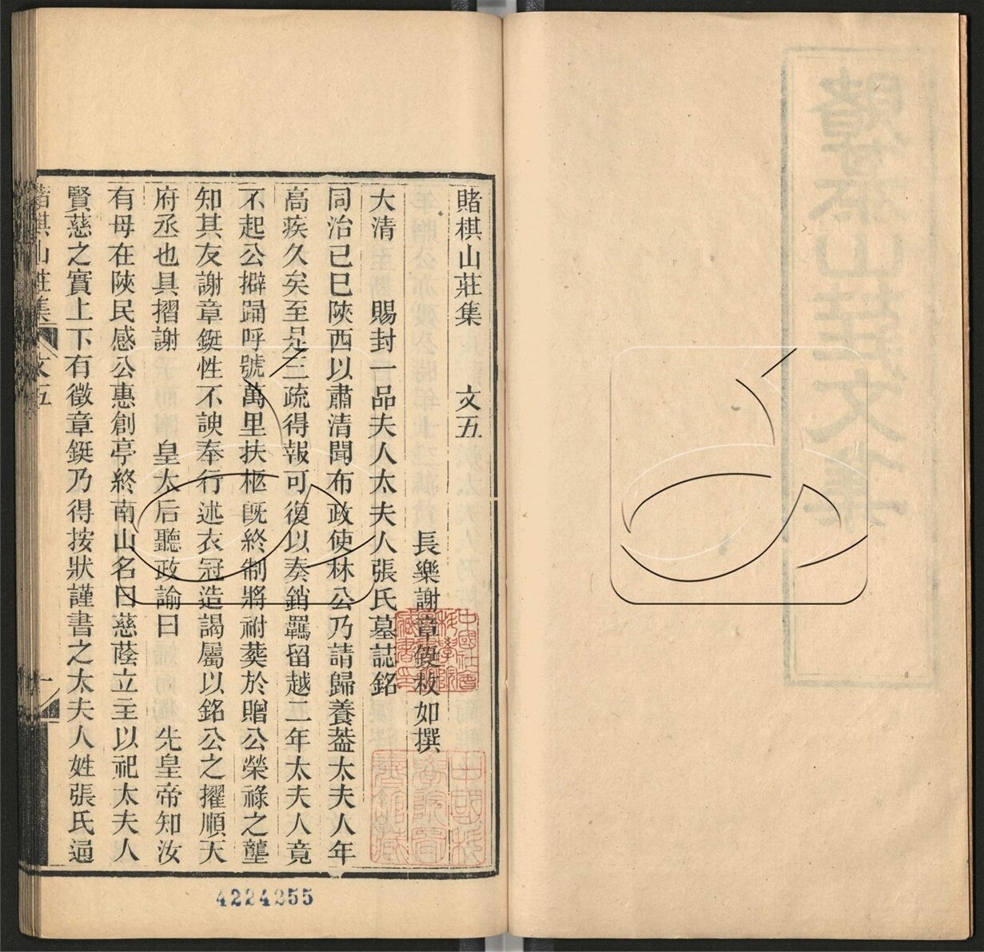 賭棋山莊集　文五
長樂謝章鋌枚如撰
大清　賜封一品夫人太夫人張氏墓誌銘
同治己巳陝西以肅清聞布政使林公乃請歸養葢太夫人年
高疾久矣至是三疏得報可復以奏銷羈留越二年太夫人竟
不起公擗踊呼號萬里扶柩旣終制將祔葬於贈公榮祿之壟
知其友謝章鋌性不諛奉行述衣冠造謁屬以銘公之擢順天
府丞也具摺謝　皇太后聽政諭曰　先皇帝知汝
有母在陝民感公惠創亭終南山名曰慈蔭立主以祀太夫人
賢慈之實上下有徵章鋌乃得按狀謹書之太夫人姓張氏通
賭棋山莊集　文五　一
4224255